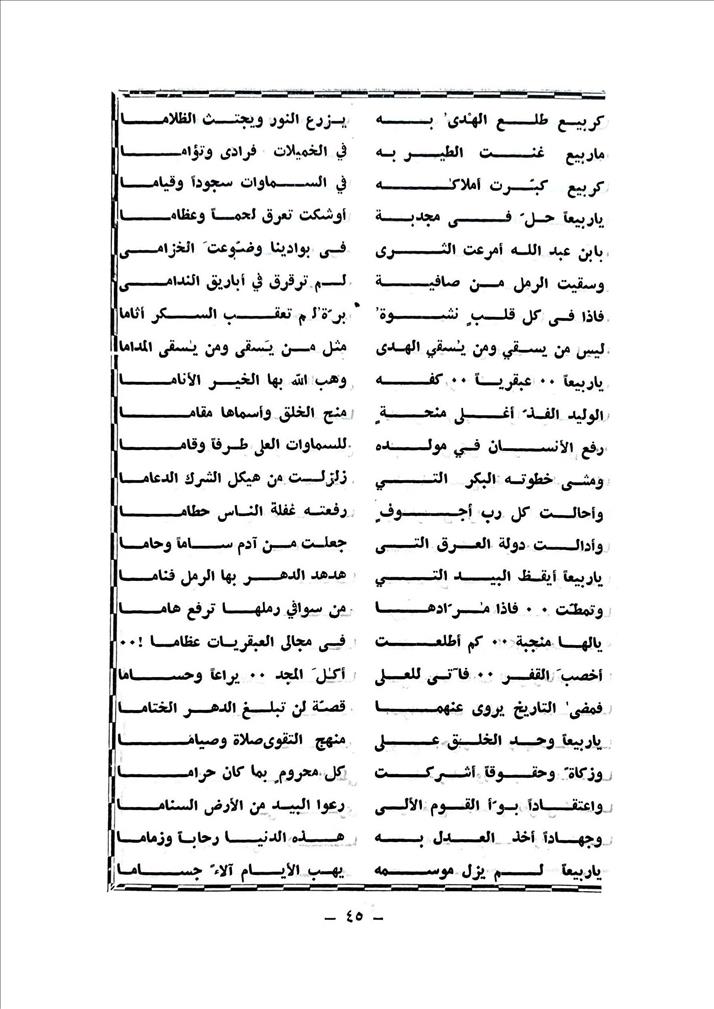 كربيع طلع الهدى به يزرع النور ويجتث الظلاما
ماربيع غنت الطير به في الخميلات فرادى وتؤاما
كربيع كبّرت أملاكه في السماوات سجوداً وقياما
ياربيعاً حلّ فى مجدبة أوشكت تعرق لحماً وعظاما
يابن عبد الله أمرعت الثرى فى بوادينا وضوّعت الخزامى
وسقيت الرمل من صافية لم ترقرق في أباريق الندامى
فاذا فى كل قلبٍ نشوة برّة لم تعقب السكر أثاما
ليس من يسقي ومن يُسقي الهدى مثل من يَسقى ومن يسقى المداما
ياربيعاً ٠٠ عبقرياً ٠٠ كفه وهب الله بها الخير الأناما
الوليد الفذّ أغلى منحةٍ منح الخلق وأسماها مقاما
رفع الأنسان في مولده للسماوات العلى طرفاً وقاما
ومشى خطوته البكر التي زلزلت من هيكل الشرك الدعاما
وأحالت كل رب أجوفٍ رفعته غفلة الناس حطاما
وأدالت دولة العرق التى جعلت من آدم ساماً وحاما
ياربيعاً أيقظ البيد التي هدهد الدهر بها الرمل فناما
وتمطّت ٠٠ فاذا مُرّادها من سوافي رملها ترفع هاما
يالها منجبة ٠٠ كم أطلعت فى مجالى العبقريات عظاما !٠٠
أخصبَ القفر ٠٠ فآتى للعلى أكلَ المجد ٠٠ يراعاً وحساما
فمضى التاريخ يروى عنهما قصّة لن تبلغ الدهر الختاما
ياربيعاً وحد الخلق على منهج التقوى صلاة وصياما
وزكاةً وحقوقاً أشركت كل محرومٍ بما كان حراما
واعتقاداً بوّأ القوم الألى رعوا البيد من الأرض السناما
وجهاداً أخذ العدل به هذه الدنيا رحاباً وزماما
ياربيعاً لم يزل موسمه يهب الأيام آلاءً جساما
– ٤٥ –